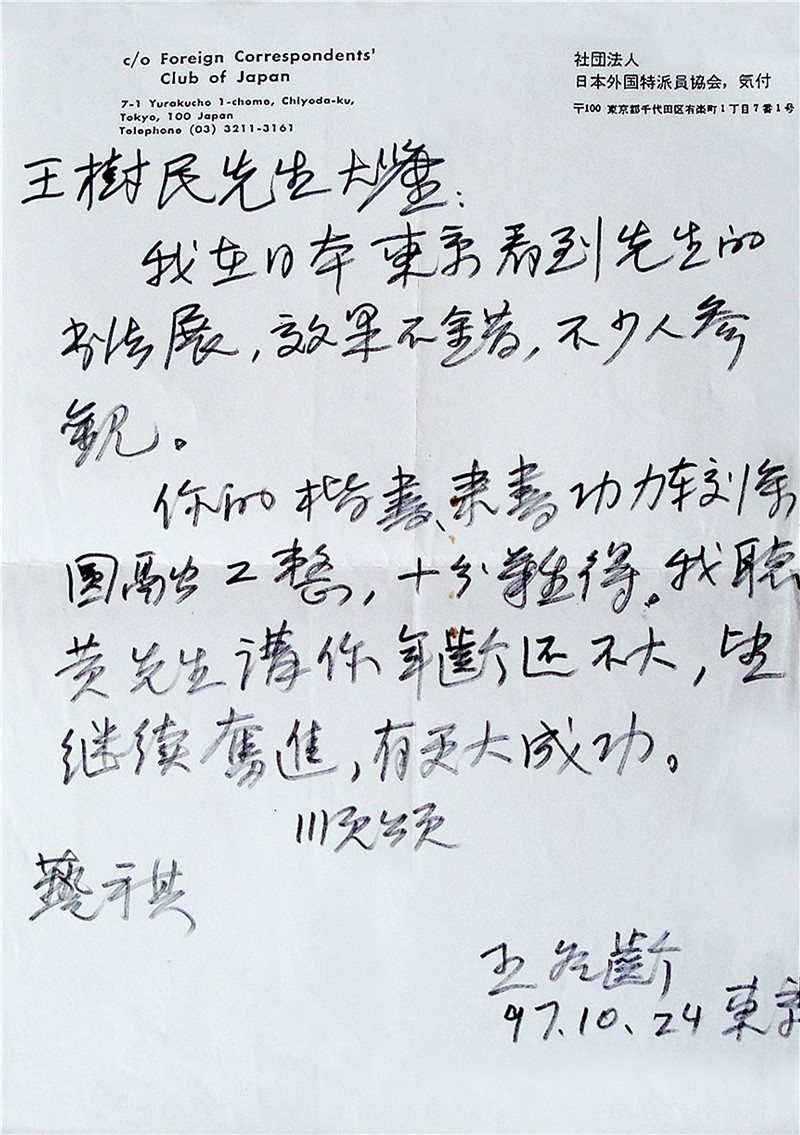 c/o Foreign Correspondents'
Club of Japan
7-1 Yurakucho 1-chomo, Chiyoda-ku,
Tokyo, 100 Japan
Telephone (03) 3211-3161
社団法人
日本外国特派員協会，気付
〒100 東京都千代田区有楽町1丁目7番1号
王樹民先生大鉴：
我在日本東京看到先生的
书法展，效果不錯，不少人参
観。
你的楷書、隶書功力较深
圆融工整，十分難得。我聴
黄先生講你年齡还不大，望
继续奮進，有更大成功。
順頌
藝祺
王冬齡
97.10.24 東京